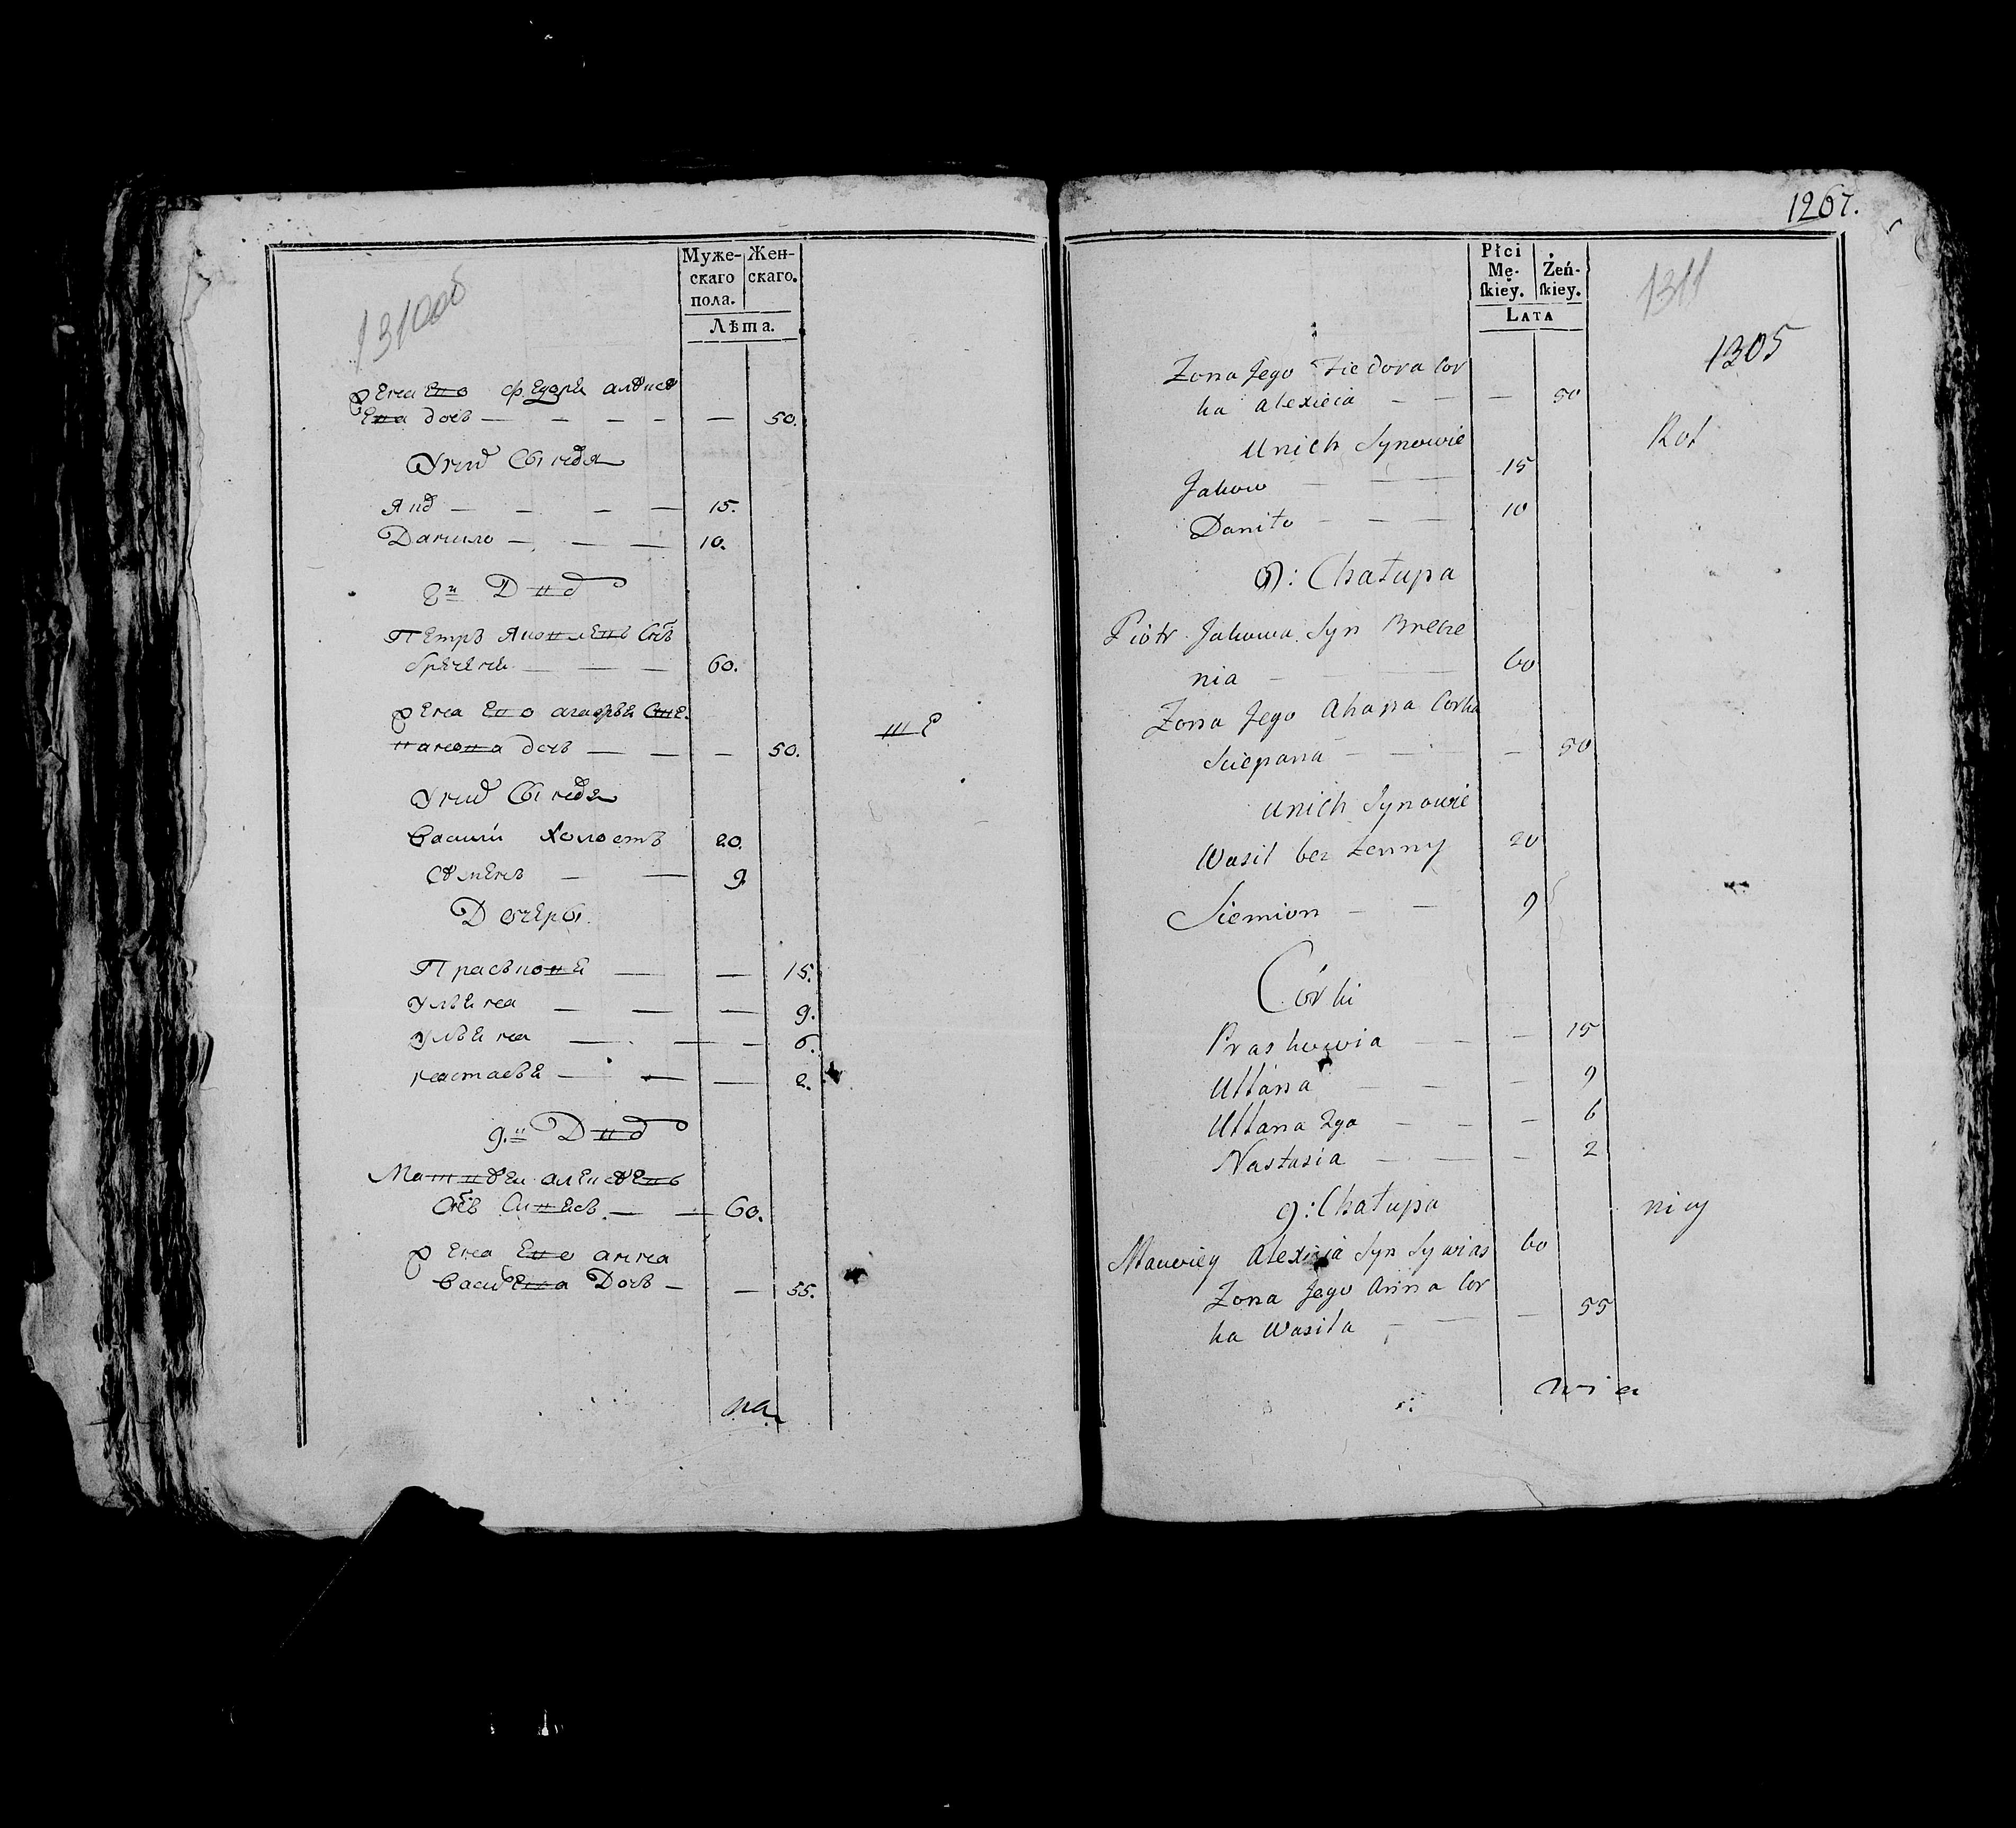 1310об
Муже-
скаго
пола.
Жен-
скаго.
Лѣта.
жена его Федора алексе
ева дочь — 50.
У них Сыновя
Яков — 15.
Данило — 10.
8й Двор
Петръ Яковлевъ Сынъ
— 60.
жена его агафья Сте
панова дочь — 50.
У них Сыновя
Василий Холостъ 20.
Семенъ — 9.
Дочери
Прасковя — 15.
Ульяна — 9.
Ульяна — 6.
Настасья — 2.
9.й Двор
Матвей алексеевъ
Сынъ — 60.
жена его анна
Васильева Дочь — 55.
1267.
Płci
Mę-
ſkiey.
Żeń-
ſkiey.
LATA
1311
1305
Zona Jego Fiedora Cor
ka Alexieia — 50
Unich Synowie
Jakow — 15
Daniło — 10
8: Chałupa
Piotr Jakowa Syn Brecze
nia — 60
Zona Jego Ahapa Corka
Sciepana — 50
Unich Synowie
Wasil bez zenny 20
Siemion — 9
Córki
Praskowia — 15
Ullana — 9
Ullana 2ga — 6
Nastasia — 2
9: Chałupa
Macwiey Alexieia Syn Sywias 60
Zona Jego Anna Cor
ka Wasila — 55